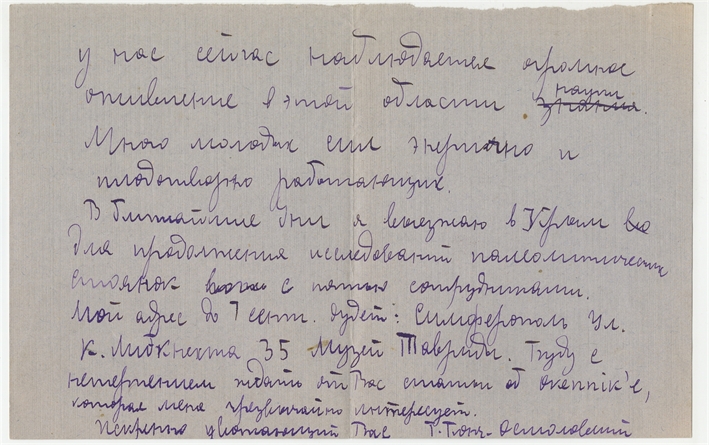 у нас сейчас наблюдается огромное
оживление в этой области науки знания.
Много молодых сил энергично и
плодотворно работающих.
В ближайшие дни я выезжаю в Крым
для продолжения исследований палеолитических
стоянок с пятью сотрудниками.
Мой адрес до 7 сент. будет: Симферополь ул.
К. Либкнехта 35 Музей Тавриды. Буду с
нетерпением ждать от Вас статьи об
которая меня чрезвычайно интересует.
Искренно уважающий Вас Г. Бонч-Осмоловский